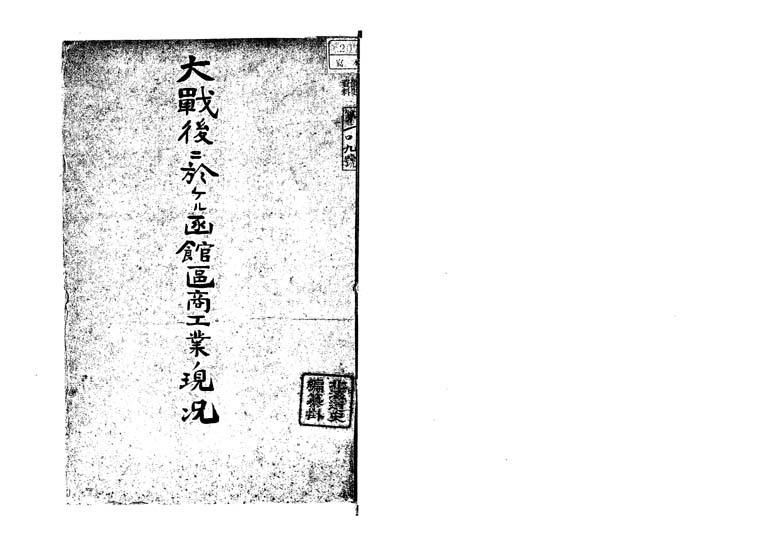 大戰後ニ於ケル函館區商工業ノ現況
寫本
第一〇九號
北海道史
編纂掛